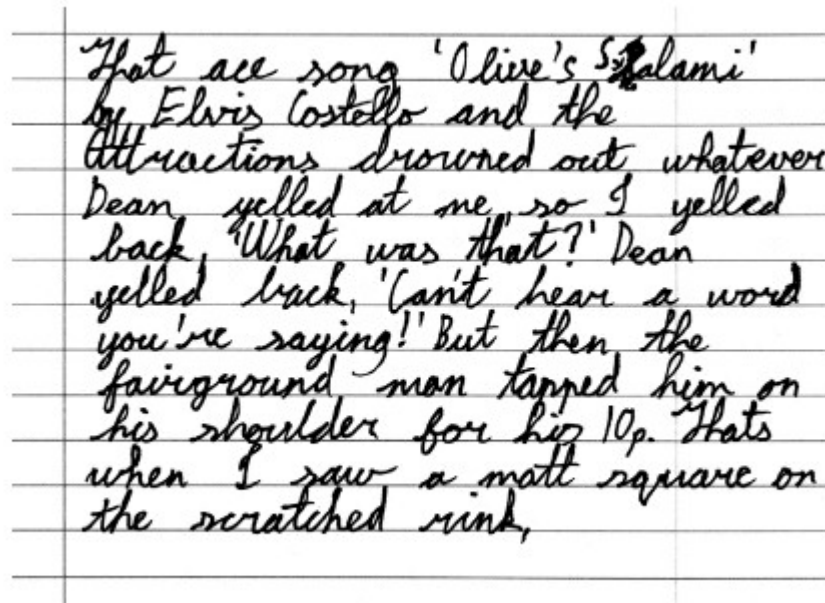 That ace song 'Olive's Salami'
by Elvis Costello and the
Attractions drowned out whatever
Dean yelled at me, so I yelled
back, 'What was that?' Dean
yelled back, 'Can't hear a word
you're saying!' But then the
fairground man tapped him on
his shoulder for his 10p. Thats
when I saw a matt square on
the scratched rink,